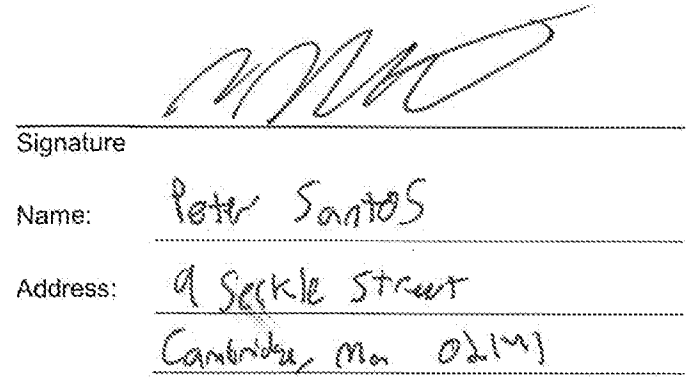 Signature
Name: Peter Santos
Address: 9 Seckle Street
Cambridge, Ma 02141